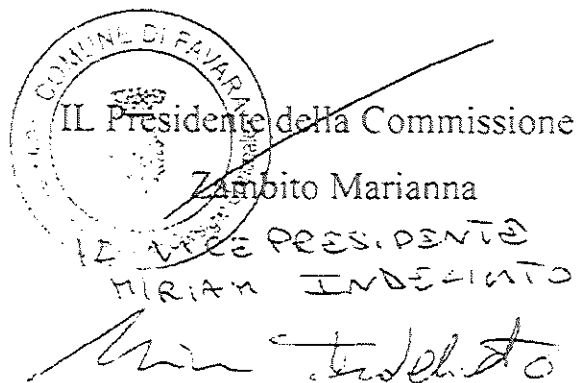 COMUNE DI FAVARA
IL Presidente della Commissione
Zambito Marianna
IL VICE PRESIDENTE
MIRIAM INDELICATO